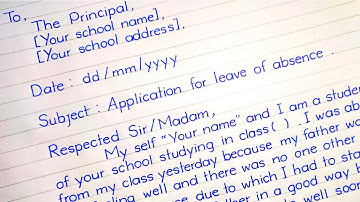 To,
The Principal,
[Your school name],
[Your school address].
Date : dd/mm/yyyy
Subject : Application for leave of absence .
Respected Sir/Madam,
My self "Your name" and I am a studen
of your school studying in class ( ) . I was abs
from my class yesterday because my father wa
ling well and there was no one other
due to which I had to sta
in a good way b
well soon